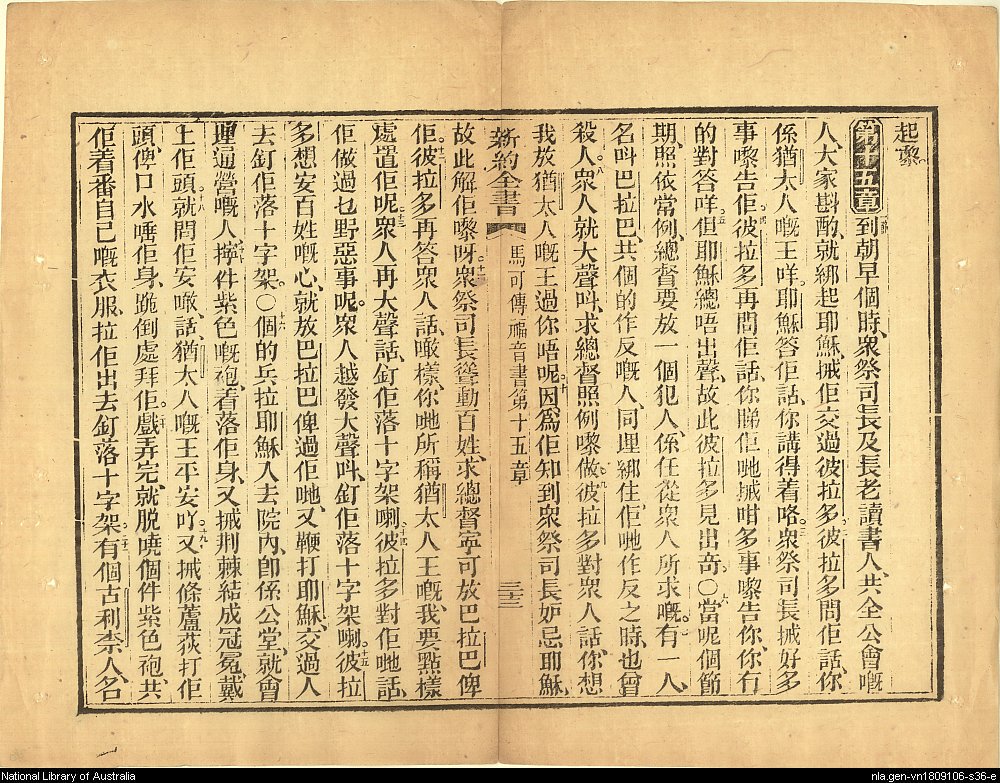 起嚟
第十五章到朝早個時、衆祭司長及長老讀書人、共全公會嘅
人、大家斟酌、就綁起耶穌、搣佢交過彼拉多、彼拉多問佢話、你
係猶太人嘅王咩、耶穌答佢話、你講得着咯、衆祭司長搣好多
事嚟告佢、彼拉多再問佢話、你睇佢哋搣咁多事嚟告你、你冇
的對答咩、但耶穌總唔出聲、故此彼拉多見出奇、〇當呢個節
期、照依常例、總督要放一個犯人、係任從衆人所求嘅、有一人、
名叫巴拉巴、共個的作反嘅人、同埋綁住、佢哋作反之時、也曾
殺人、衆人就大聲叫、求總督照例嚟做、彼拉多對衆人話、你想
我放猶太人嘅王過你唔呢、因爲佢知到衆祭司長妒忌耶穌、
新約全書 馬可傳福音書第十五章 三十三
故此解佢嚟呀、衆祭司長聳動百姓、求總督寧可放巴拉巴俾
佢、彼拉多再答衆人話、噉樣、你哋所稱猶太人王嘅、我要點樣
處置佢呢、衆人再大聲話、釘佢落十字架喇、彼拉多對佢哋話、
佢做過乜野惡事呢、衆人越發大聲叫、釘佢落十字架喇、彼拉
多想安百姓嘅心、就放巴拉巴俾過佢哋、又鞭打耶穌、交過人
去釘佢落十字架、〇個的兵拉耶穌入去院內、卽係公堂、就會
埋通營嘅人、擰件紫色嘅袍、着落佢身、又搣荆棘結成冠冕、戴
上佢頭、就問佢安噉、話、猶太人嘅王平安吖、又搣條蘆荻打佢
頭、俾口水唾佢身、跪倒處拜佢、戲弄完、就脫曉個件紫色袍、共
佢着番自己嘅衣服、拉佢出去釘落十字架、有個古利奈人、名
National Library of Australia
nla.gen-vn1809106-s36-e